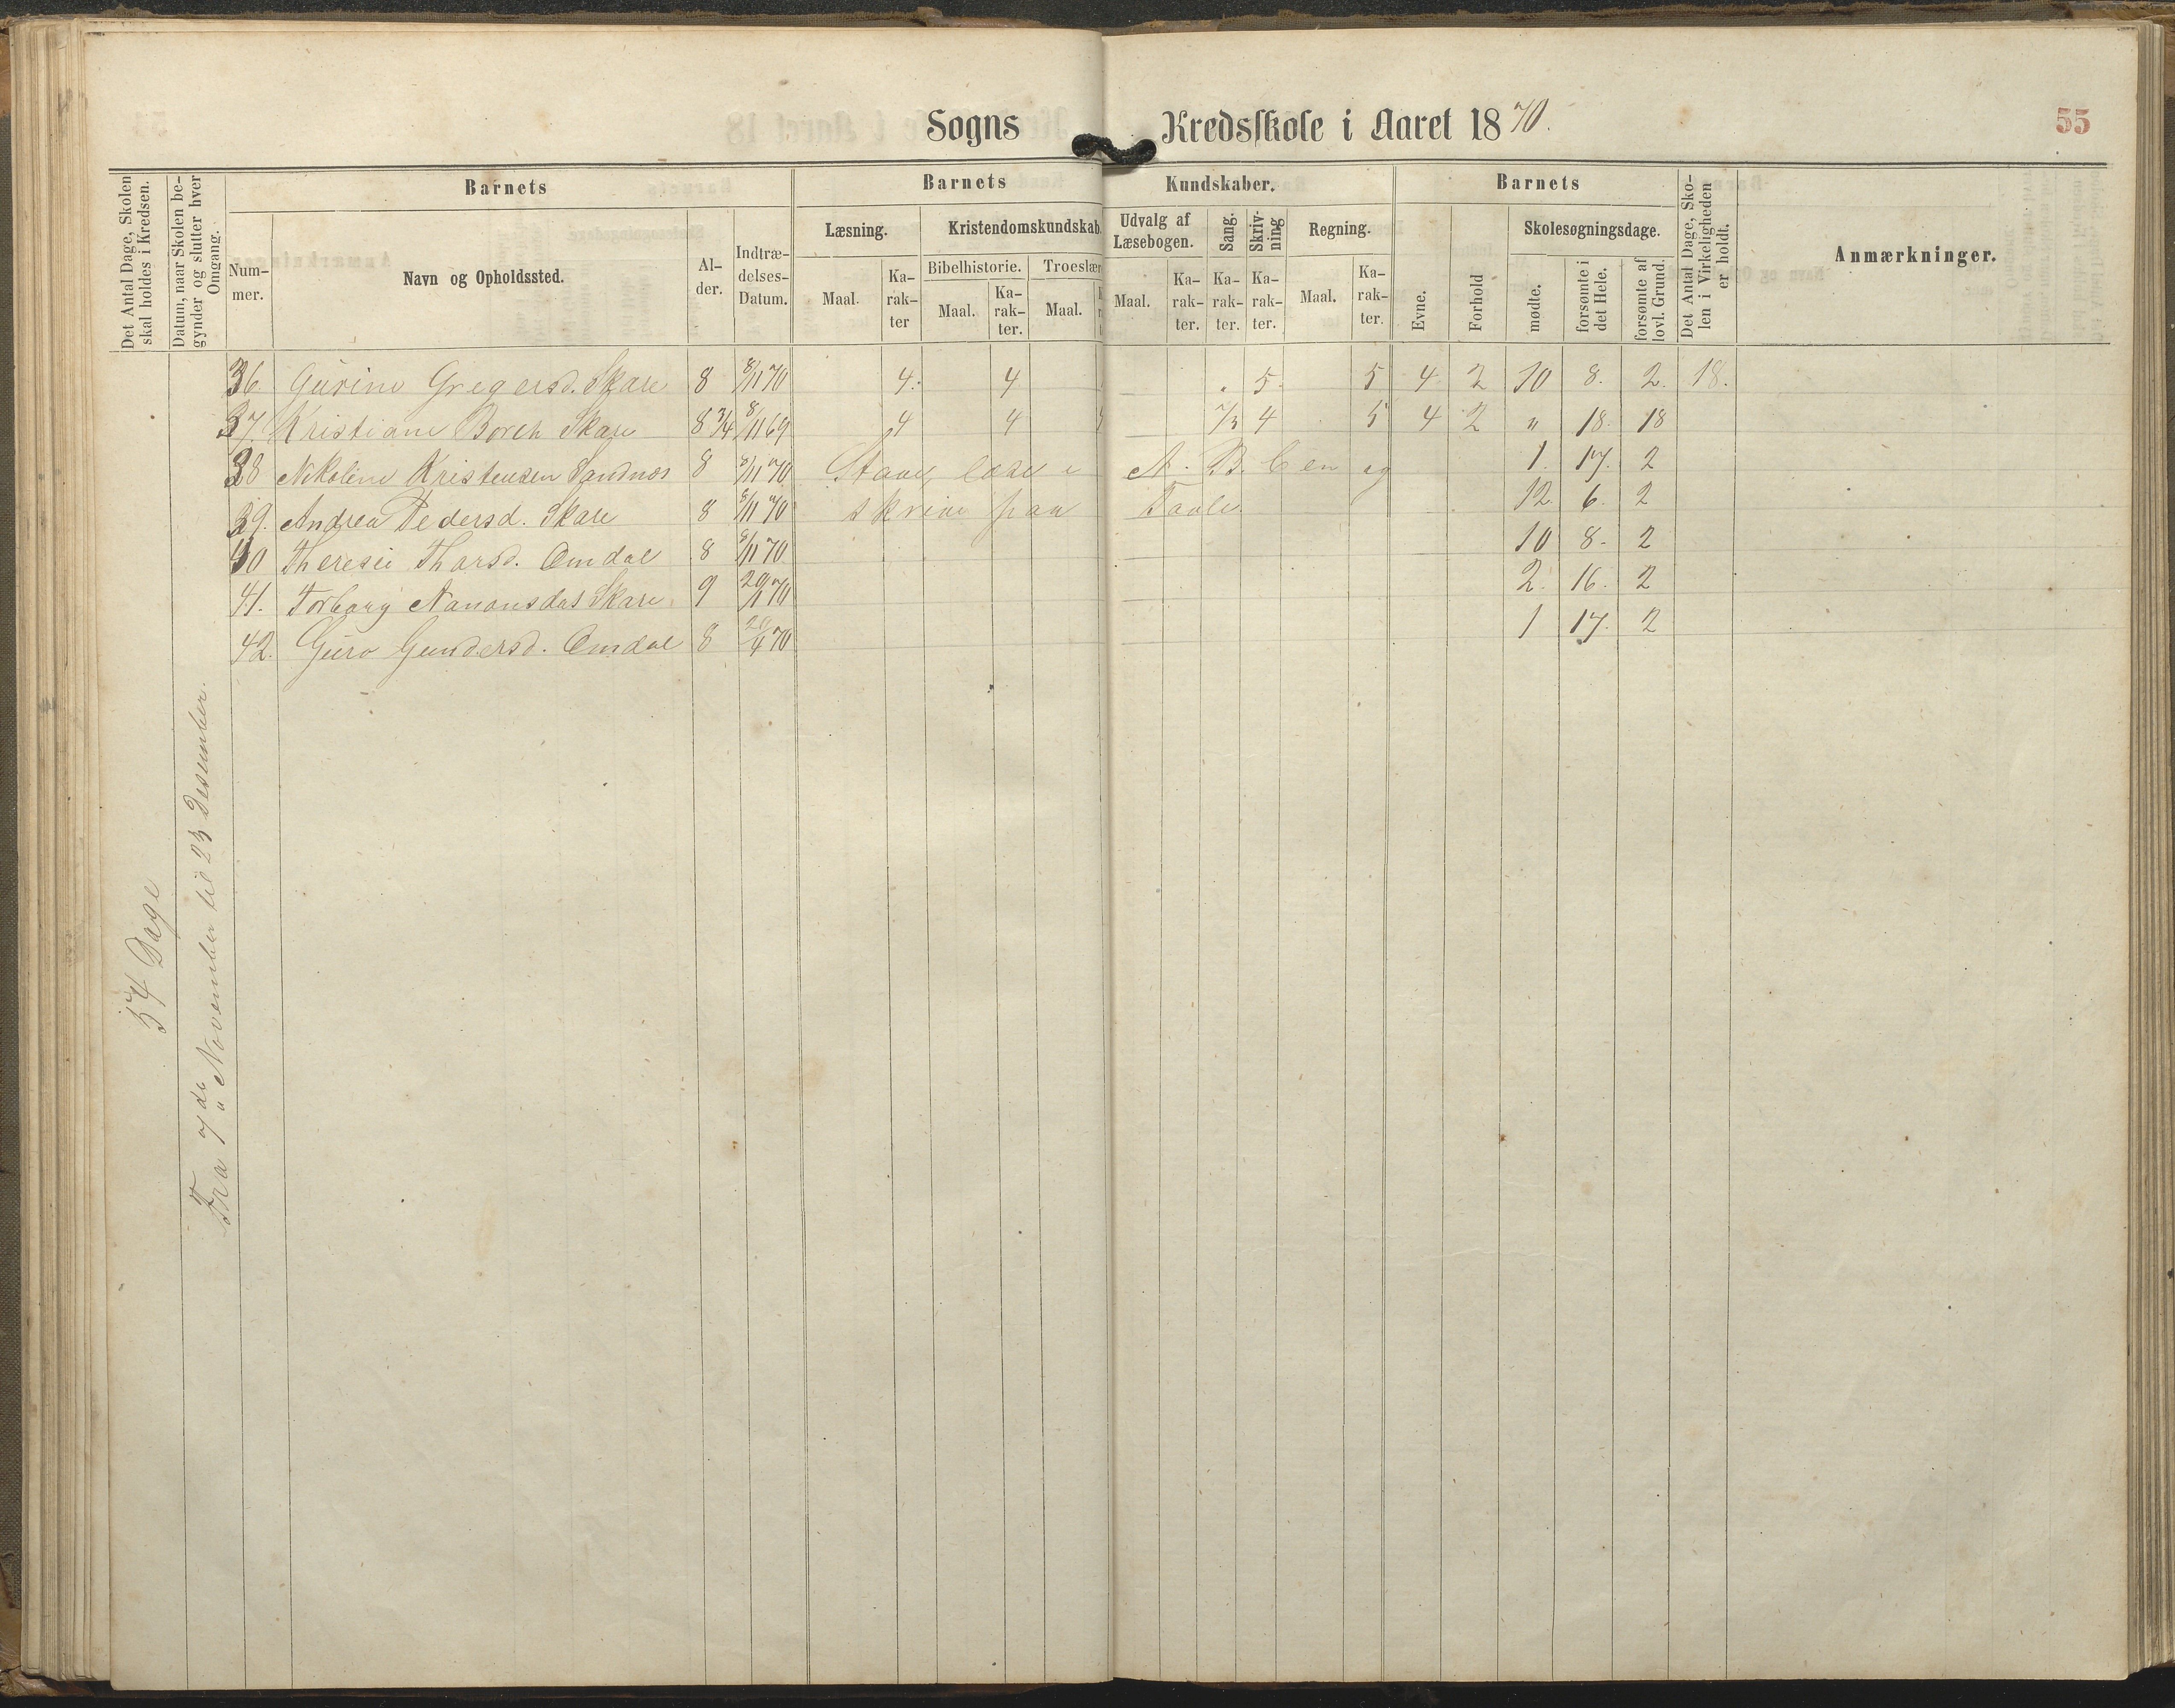 Sogns Kredsskole i Aaret 1870.
55
Det Antal Dage, Skolen skal holdes i Kredsen.
Datum, naar Skolen begynder og slutter hver Omgang.
Barnets
Barnets
Kundskaber.
Barnets
Det Antal Dage, Skolen i Virkeligheden er holdt.
Anmærkninger.
Nummer.
Navn og Opholdssted.
Alder.
Indtrædelses-Datum.
Læsning.
Kristendomskundskab.
Udvalg af Læsebogen.
Sang.
Skrivning
Regning.
Evne.
Forhold
Skolesøgningsdage.
Bibelhistorie.
Troeslær
Maal. Karakter
Maal. Karakter.
Maal.
Maal. Karakter. Karakter. Karakter. Maal. Karakter.
mødte.
forsømte i det Hele.
forsømte af lovl. Grund.
36. Gurine Gregersd. Skare 8 8/11 70 4. 4 5. 5 4 2 10 8. 2. 18.
37. Kristiane Borch Skare 8 3/4 8/11 69 4 4 4 5 4 2 " 18. 18
38 Nikoline Kristensen Sandnæs 8 8/11 70 Stave, læse i A. B. C en og 1. 17. 2
39. Andrea Pedersd. Skare 8 8/11 70 skrive paa Tavle. 12. 6. 2
40 Theresie Tharsd. Omdal 8 8/11 70 10 8. 2
41. Torborg Skare 9 70 2. 16. 2
42. Guro Gundersd. Omdal 8 70 1 17. 2
54 Dage
Fra 7de November til 23 Desember.